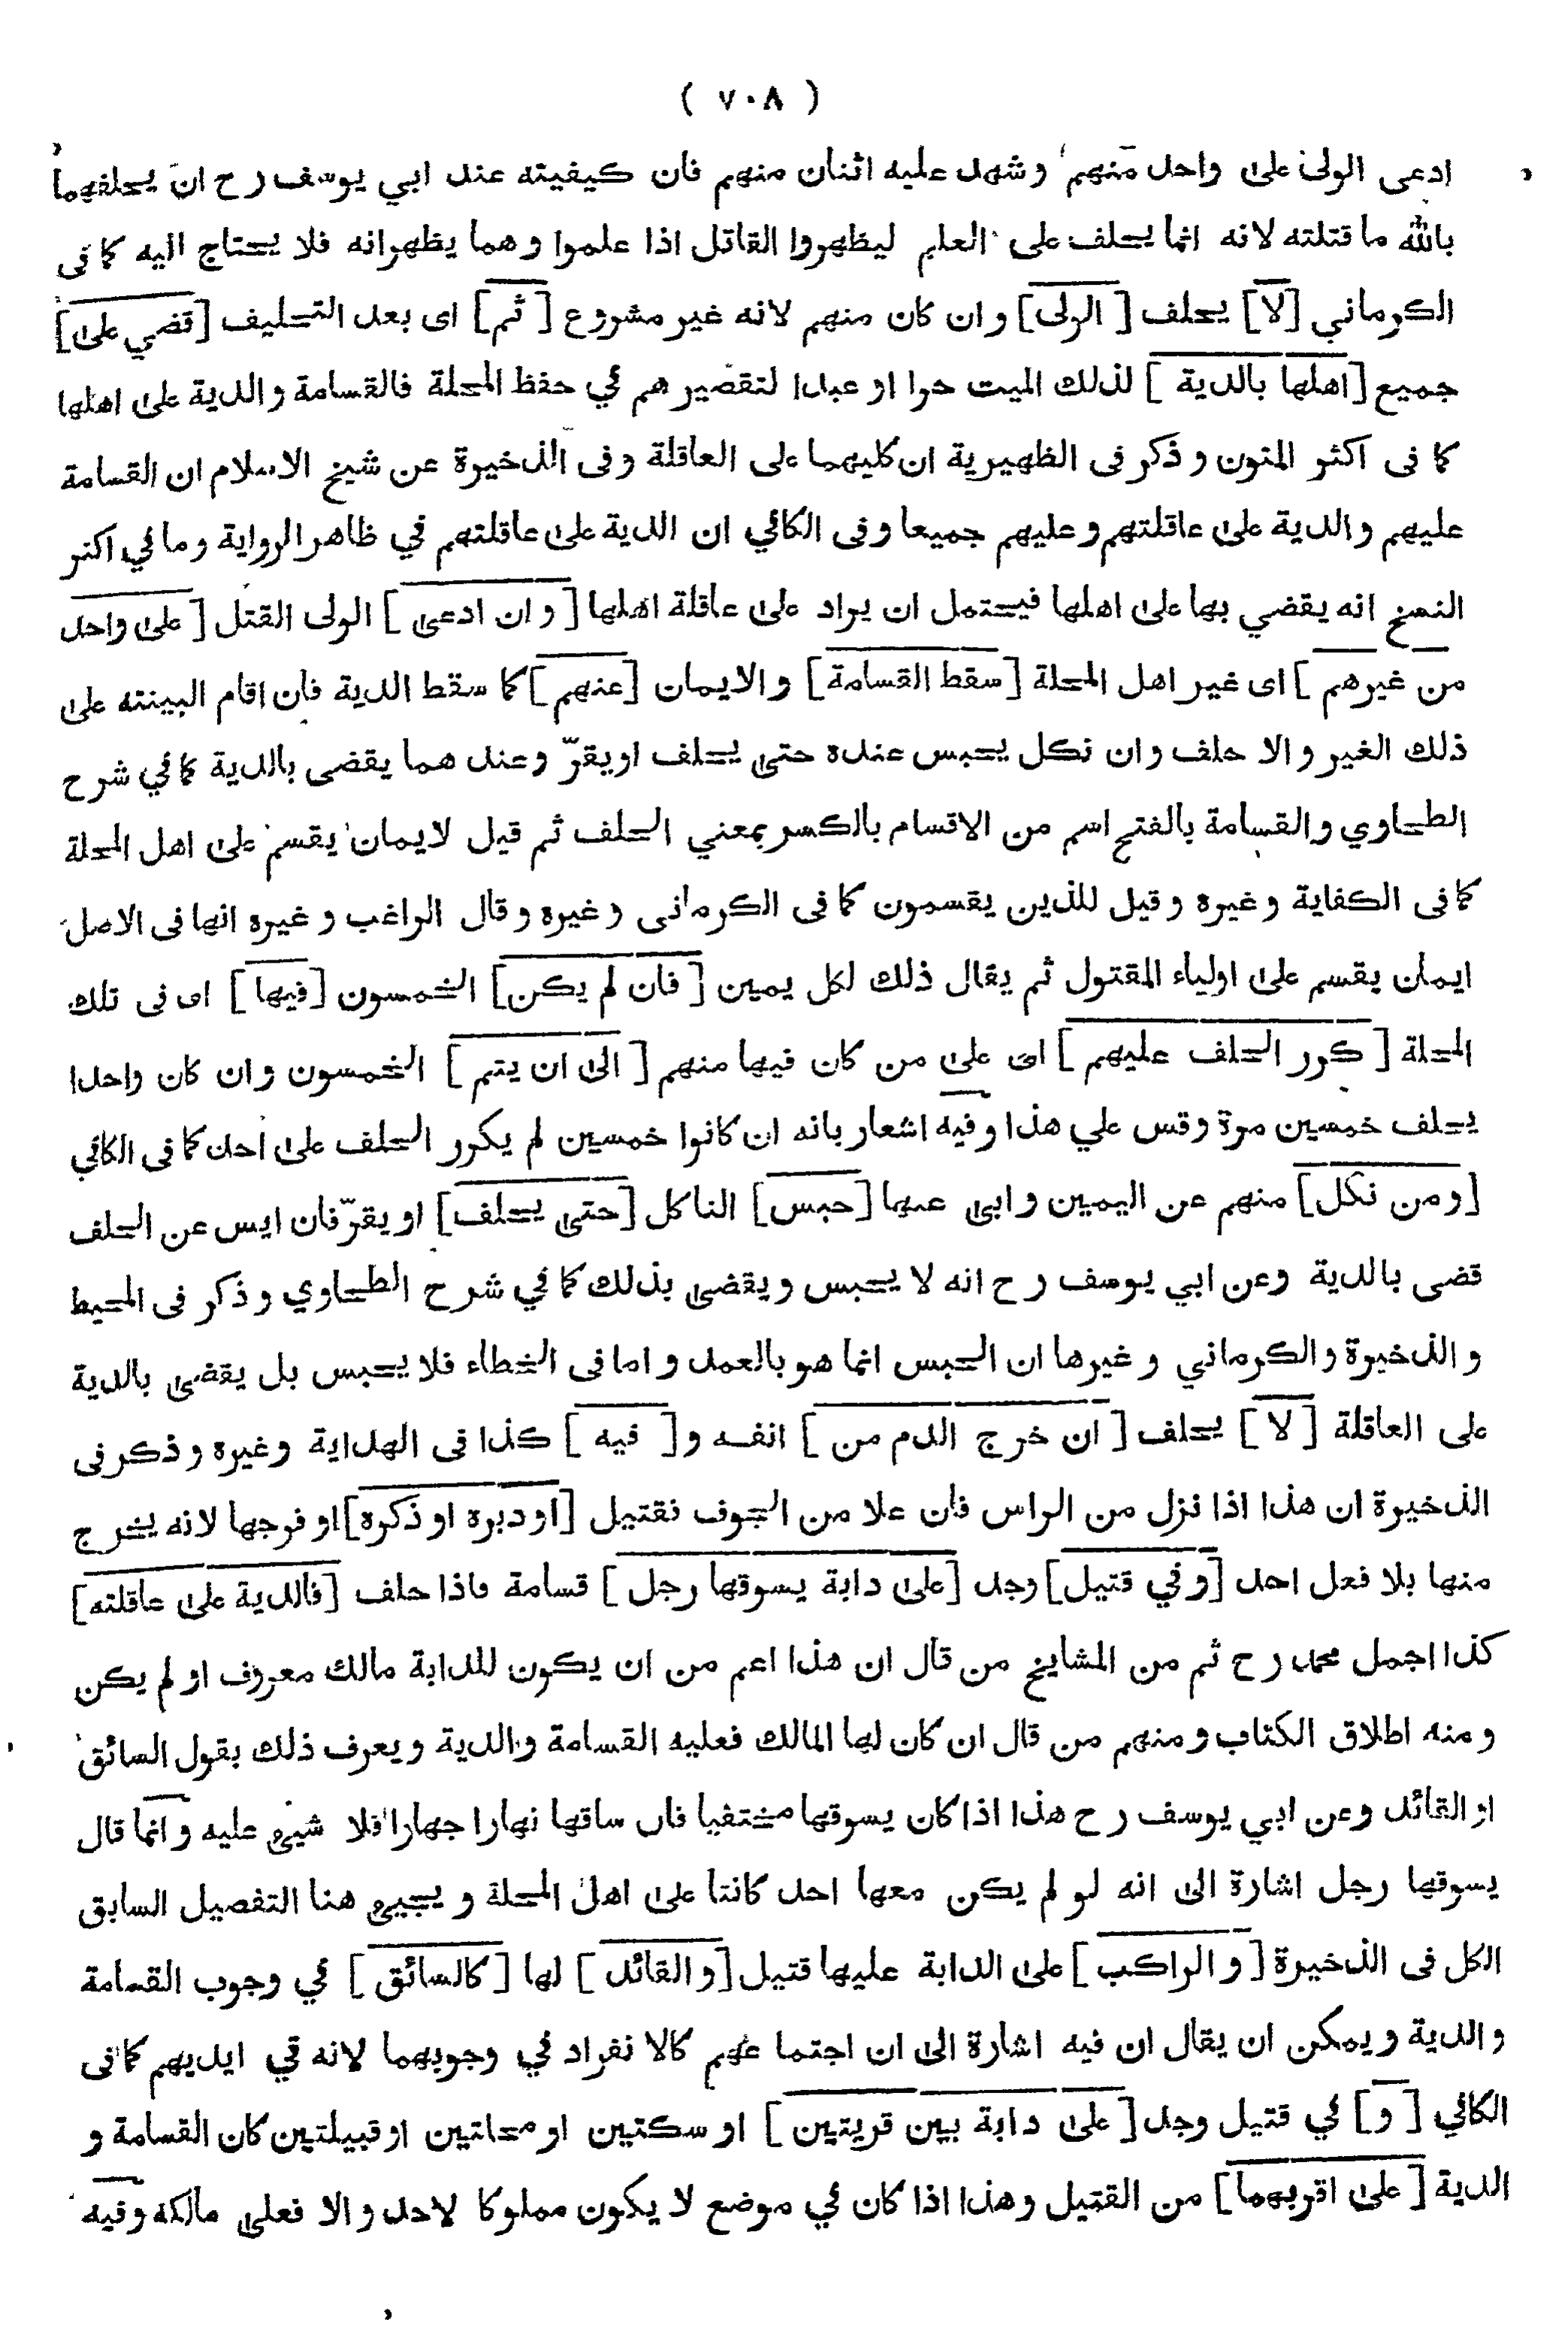 ( ٧٠٨ )
ادعى الولى على واحد منهم وشهد عليه اثنان منهم فان كيفيته عند ابي يوسف رح ان يحلفهما
بالله ما قتلته لانه انما يحلف على العلم ليظهروا القاتل اذا علموا وهما يظهرانه فلا يحتاج اليه كما فى
الكرماني [لا] يحلف [الولى] وان كان منهم لانه غير مشروع [ثم] اى بعد التحليف [قضي على]
جميع [اهلها بالدية] لذلك الميت حرا او عبدا لتقصير هم في حفظ المحلة فالقسامة والدية على اهلها
كما فى اكثر المتون وذكر فى الظهيرية ان كليهما على العاقلة وفى الذخيرة عن شيخ الاسلام ان القسامة
عليهم والدية على عاقلتهم وعليهم جميعا وفى الكافي ان الدية على عاقلتهم في ظاهر الرواية وما في اكثر
النسخ انه يقضي بها على اهلها فيحتمل ان يراد على عاقلة اهلها [وان ادعى] الولى القتل [على واحد
من غيرهم] اى غير اهل المحلة [سقط القسامة] والايمان [عنهم] كما سقط الدية فان اقام البينته على
ذلك الغير والا حلف وان نكل يحبس عنده حتى يحلف اويقرّ وعند هما يقضى بالدية كما في شرح
الطحاوي والقسامة بالفتح اسم من الاقسام بالكسر بمعني الحلف ثم قيل لايمان يقسم على اهل المحلة
كما فى الكفاية وغيره وقيل للذين يقسمون كما فى الكرمانى وغيره وقال الراغب وغيره انها فى الاصل
ايمان يقسم على اولياء المقتول ثم يقال ذلك لكل يمين [فان لم يكن] الخمسون [فيها] اى فى تلك
المحلة [كرر الحلف عليهم] اى على من كان فيها منهم [الى ان يتم] الخمسون وان كان واحدا
يحلف خمسين مرة وقس علي هذا وفيه اشعار بانه ان كانوا خمسين لم يكرر الحلف على احد كما فى الكافي
[ومن نكل] منهم عن اليمين وابى عنها [حبس] الناكل [حتى يحلف] او يقرّ فان ايس عن الحلف
قضى بالدية وعن ابي يوسف رح انه لا يحبس ويقضى بذلك كما في شرح الطحاوي وذكر فى المحيط
والذخيرة والكرماني وغيرها ان الحبس انما هو بالعمد واما فى الخطاء فلا يحبس بل يقضى بالدية
على العاقلة [لا] يحلف [ان خرج الدم من] انفه و[فيه] كذا فى الهداية وغيره وذكر فى
الذخيرة ان هذا اذا نزل من الراس فان علا من الجوف فقتيل [او دبره او ذكره] او فرجها لانه يخرج
منها بلا فعل احد [وفي قتيل] وجد [على دابة يسوقها رجل] قسامة فاذا حلف [فالدية على عاقلته]
كذا اجمل محمد رح ثم من المشايخ من قال ان هذا اعم من ان يكون للدابة مالك معروف او لم يكن
ومنه اطلاق الكتاب ومنهم من قال ان كان لها المالك فعليه القسامة والدية ويعرف ذلك بقول السائق
او القائد وعن ابي يوسف رح هذا اذا كان يسوقها مختفيا فان ساقها نهارا جهارا فلا شيئ عليه وانما قال
يسوقها رجل اشارة الى انه لو لم يكن معها احد كانتا على اهل المحلة ويجيئ هنا التفصيل السابق
الكل فى الذخيرة [والراكب] على الدابة عليها قتيل [والقائد] لها [كالسائق] في وجوب القسامة
والدية ويمكن ان يقال ان فيه اشارة الى ان اجتما عهم كالا نفراد في وجوبهما لانه في ايديهم كما فى
الكافي [و] في قتيل وجد [على دابة بين قريتين] او سكتين او محلتين او قبيلتين كان القسامة و
الدية [على اقربهما] من القتيل وهذا اذا كان في موضع لا يكون مملوكا لاحد والا فعلى مالكه وفيه